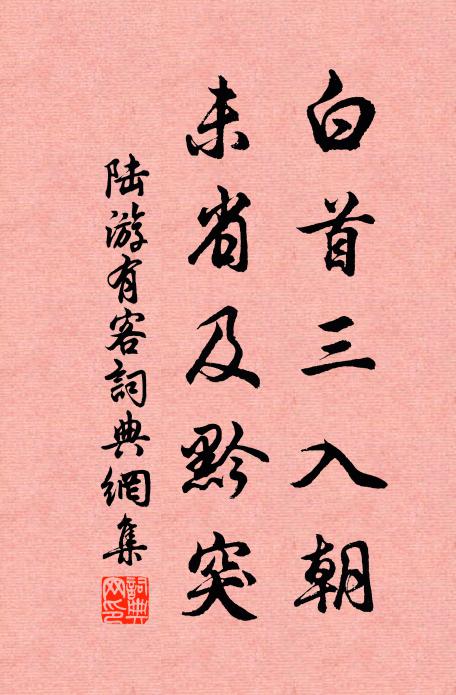 白首三入朝
未省及黔突
陆游有客詞典網集
詞典网印